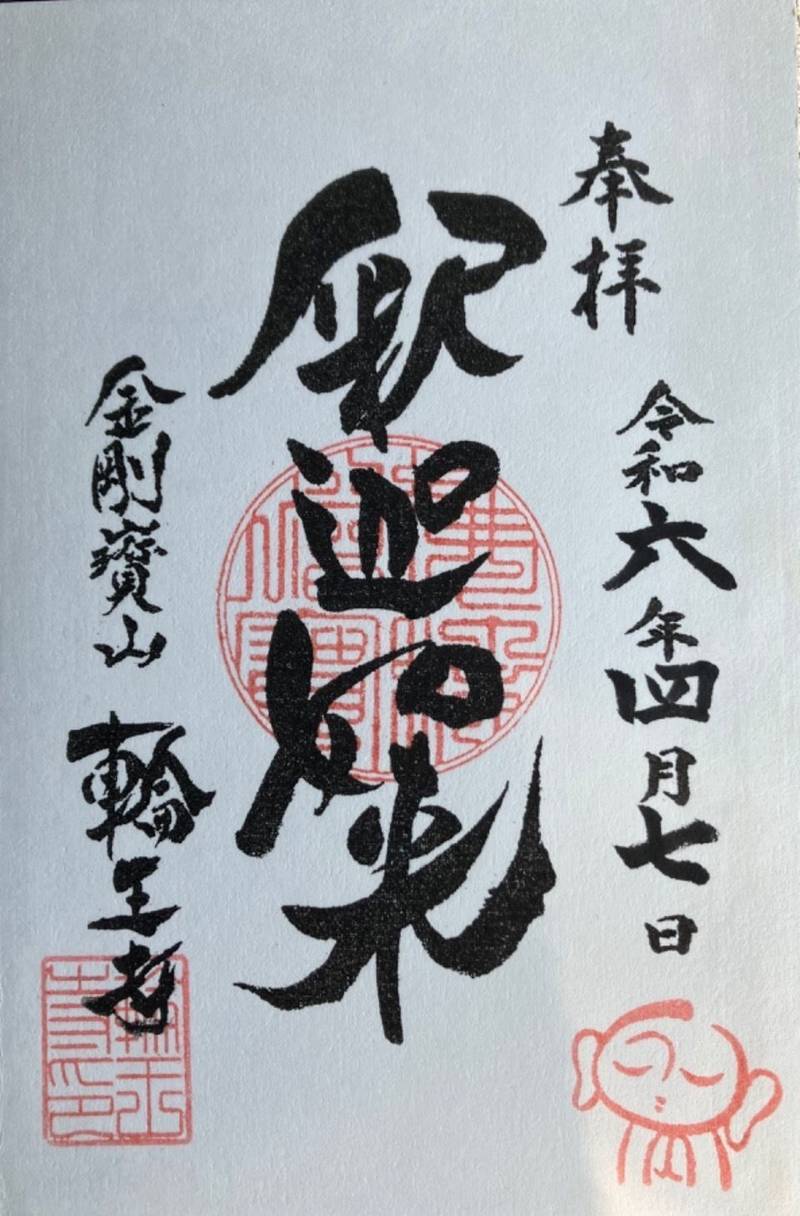 奉拝
令和六年四月七日
釈迦如来
金剛寳山
輪王寺
輪王寺印